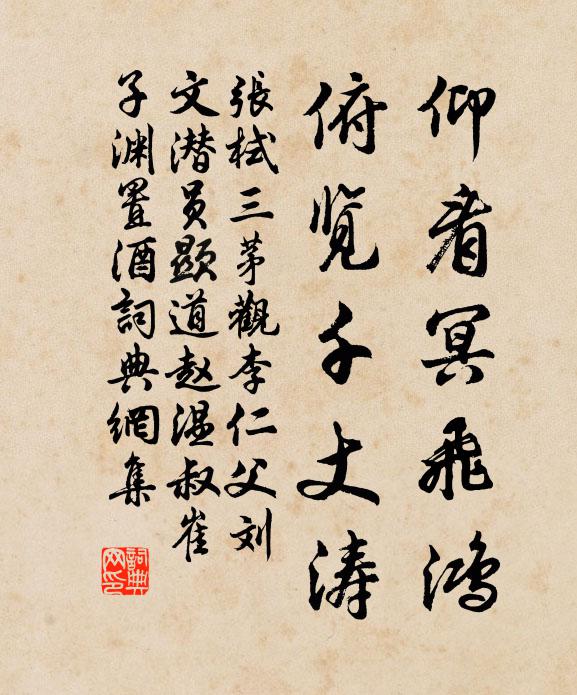 仰看冥飛鴻
俯覽千丈濤
張栻三茅觀李仁父刘
文潛员顯道赵温叔崔
子渊置酒詞典網集
詞典网印